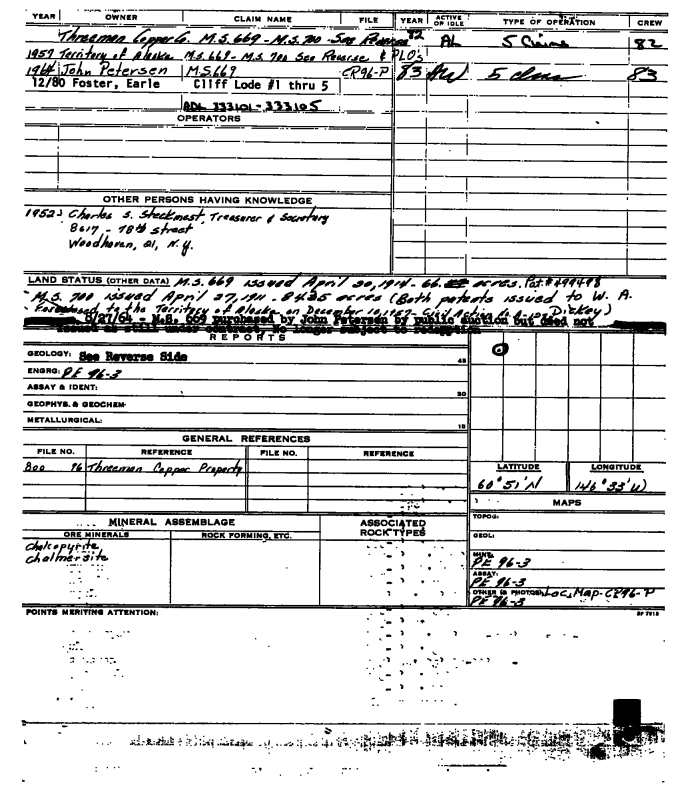 YEAR OWNER CLAIM NAME FILE YEAR ACTIVE OR IDLE TYPE OF OPERATION CREW
Threeman Copper Co. M.S. 669 - M.S. 700 - See Reverse 82 AL 5 Claims 82
1959 Territory of Alaska M.S. 669 - M.S. 700 See Reverse & PLO's
1964 John Petersen M.S. 669 CR96-P 83 AW 5 clms 83
12/80 Foster, Earle Cliff Lode #1 thru 5
ADL 333101-333105
OPERATORS
OTHER PERSONS HAVING KNOWLEDGE
1952: Charles S. Steckmest, Treasurer & Secretary
8617 - 78th street
Woodhaven, 21, N.Y.
LAND STATUS (OTHER DATA) M.S. 669 issued April 20, 1914 - 66. acres. Pat. # 499498
M.S. 700 issued April 27, 1911 - 84.35 acres (Both patents issued to W. A. Dickey)
Foreclosed to the Territory of Alaska on December 10, 1957
8/27/64 - M.S. 669 purchased by John Petersen by public auction but deed not
issued as still under contract. No longer subject to redemption
REPORTS
GEOLOGY: See Reverse Side 45
ENGRG: PE 96-3
ASSAY & IDENT: 20
GEOPHYS. & GEOCHEM
METALLURGICAL: 15
GENERAL REFERENCES
FILE NO. REFERENCE FILE NO. REFERENCE
800 96 Threeman Copper Property
LATITUDE LONGITUDE
60° 51' N 146° 33' W
MAPS
TOPOG:
GEOL:
MINE: PE 96-3
ASSAY: PE 96-3
OTHER (& PHOTOS) Loc. Map - CR96-P
PE 96-3
MINERAL ASSEMBLAGE ASSOCIATED ROCK TYPES
ORE MINERALS ROCK FORMING, ETC.
Chalcopyrite
Chalmersite
POINTS MERITING ATTENTION: